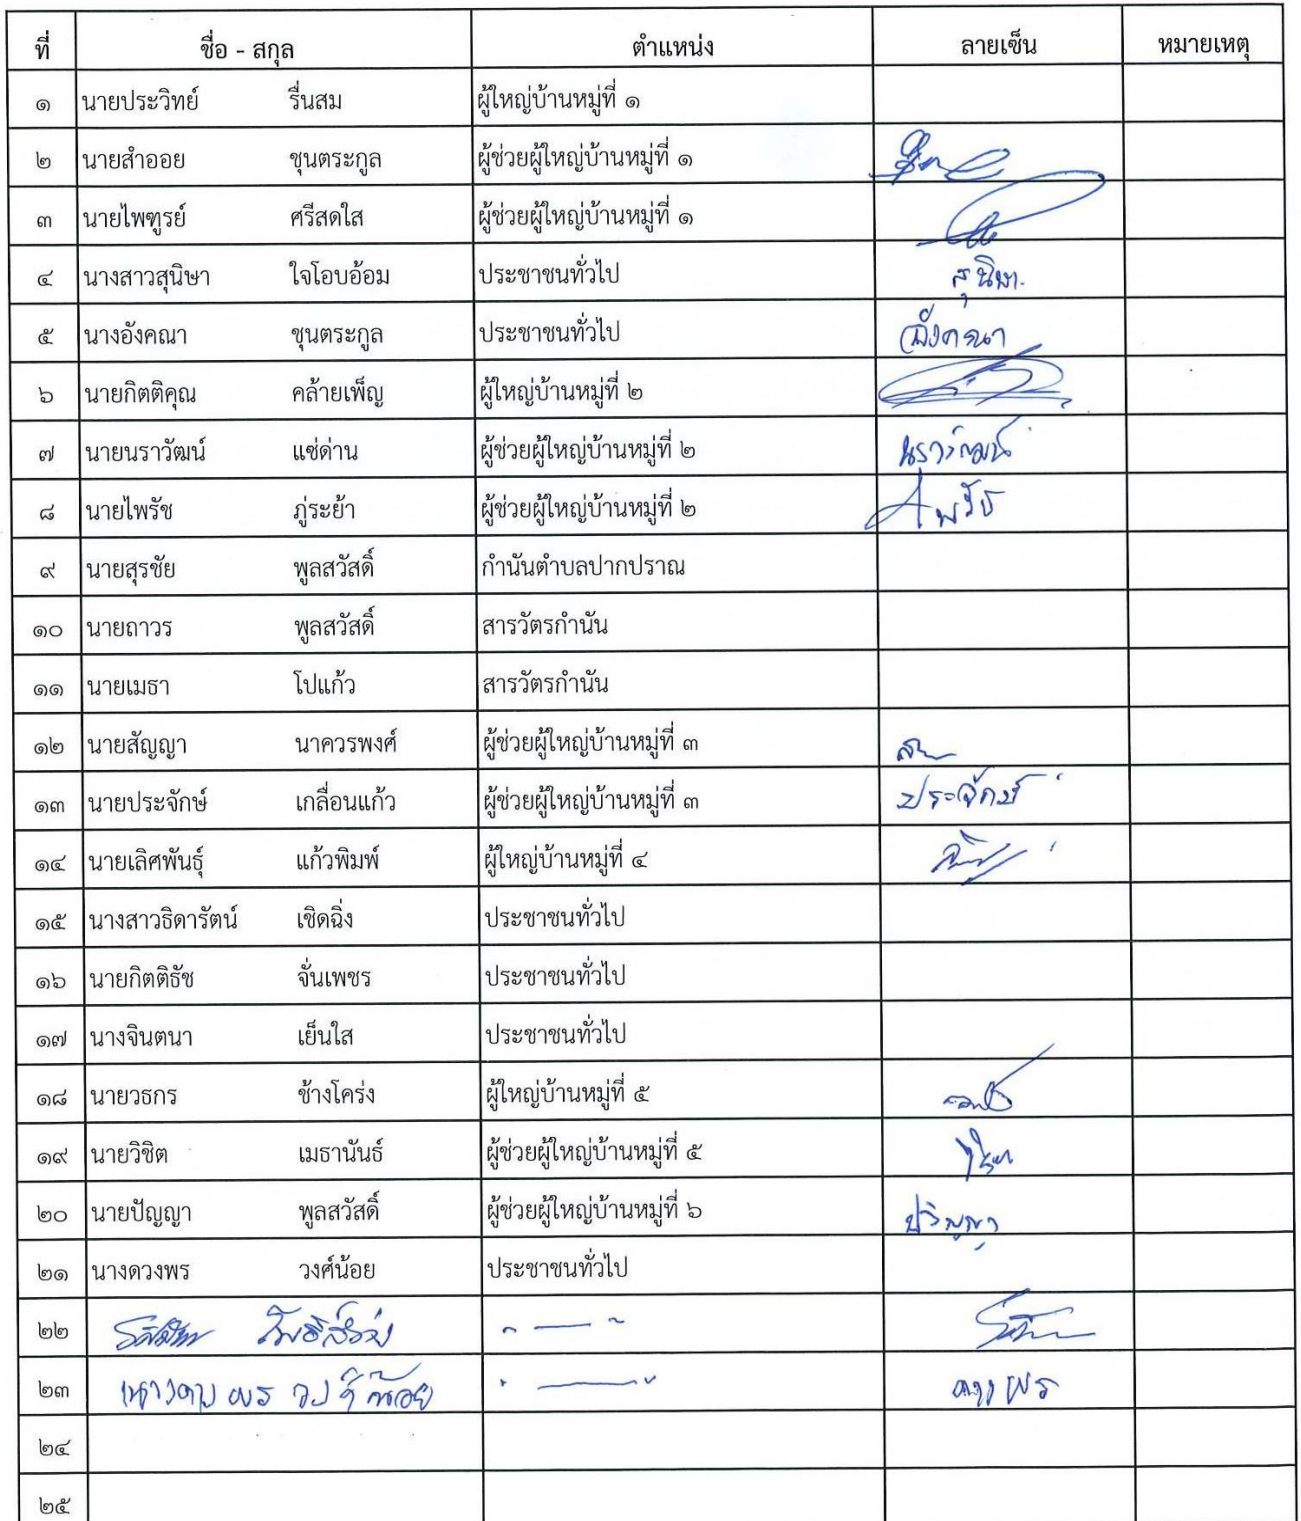 ที่ ชื่อ - สกุล ตำแหน่ง ลายเซ็น หมายเหตุ
๑ นายประวิทย์ รื่นสม ผู้ใหญ่บ้านหมู่ที่ ๑
๒ นายสำออย ชุนตระกูล ผู้ช่วยผู้ใหญ่บ้านหมู่ที่ ๑
๓ นายไพฑูรย์ ศรีสดใส ผู้ช่วยผู้ใหญ่บ้านหมู่ที่ ๑
๔ นางสาวสุนิษา ใจโอบอ้อม ประชาชนทั่วไป สุนิษา
๕ นางอังคณา ชุนตระกูล ประชาชนทั่วไป อังคณา
๖ นายกิตติคุณ คล้ายเพ็ญ ผู้ใหญ่บ้านหมู่ที่ ๒
๗ นายนราวัฒน์ แซ่ด่าน ผู้ช่วยผู้ใหญ่บ้านหมู่ที่ ๒ นราวัฒน์
๘ นายไพรัช ภู่ระย้า ผู้ช่วยผู้ใหญ่บ้านหมู่ที่ ๒ ไพรัช
๙ นายสุรชัย พูลสวัสดิ์ กำนันตำบลปากปราณ
๑๐ นายถาวร พูลสวัสดิ์ สารวัตรกำนัน
๑๑ นายเมธา โปแก้ว สารวัตรกำนัน
๑๒ นายสัญญา นาควรพงศ์ ผู้ช่วยผู้ใหญ่บ้านหมู่ที่ ๓
๑๓ นายประจักษ์ เกลื่อนแก้ว ผู้ช่วยผู้ใหญ่บ้านหมู่ที่ ๓ ประจักษ์
๑๔ นายเลิศพันธุ์ แก้วพิมพ์ ผู้ใหญ่บ้านหมู่ที่ ๔
๑๕ นางสาวธิดารัตน์ เชิดฉิ่ง ประชาชนทั่วไป
๑๖ นายกิตติธัช จั่นเพชร ประชาชนทั่วไป
๑๗ นางจินตนา เย็นใส ประชาชนทั่วไป
๑๘ นายวธกร ช้างโคร่ง ผู้ใหญ่บ้านหมู่ที่ ๕
๑๙ นายวิชิต เมธานันธ์ ผู้ช่วยผู้ใหญ่บ้านหมู่ที่ ๕
๒๐ นายปัญญา พูลสวัสดิ์ ผู้ช่วยผู้ใหญ่บ้านหมู่ที่ ๖
๒๑ นางดวงพร วงศ์น้อย ประชาชนทั่วไป
๒๒
๒๓ นางดวงพร วงศ์น้อย ดวงพร
๒๔
๒๕